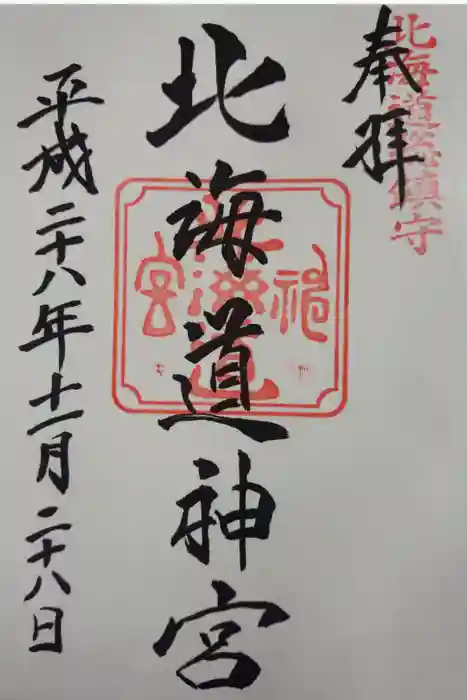 奉拝
北海道総鎮守
北海道神宮
平成二十八年十一月二十八日